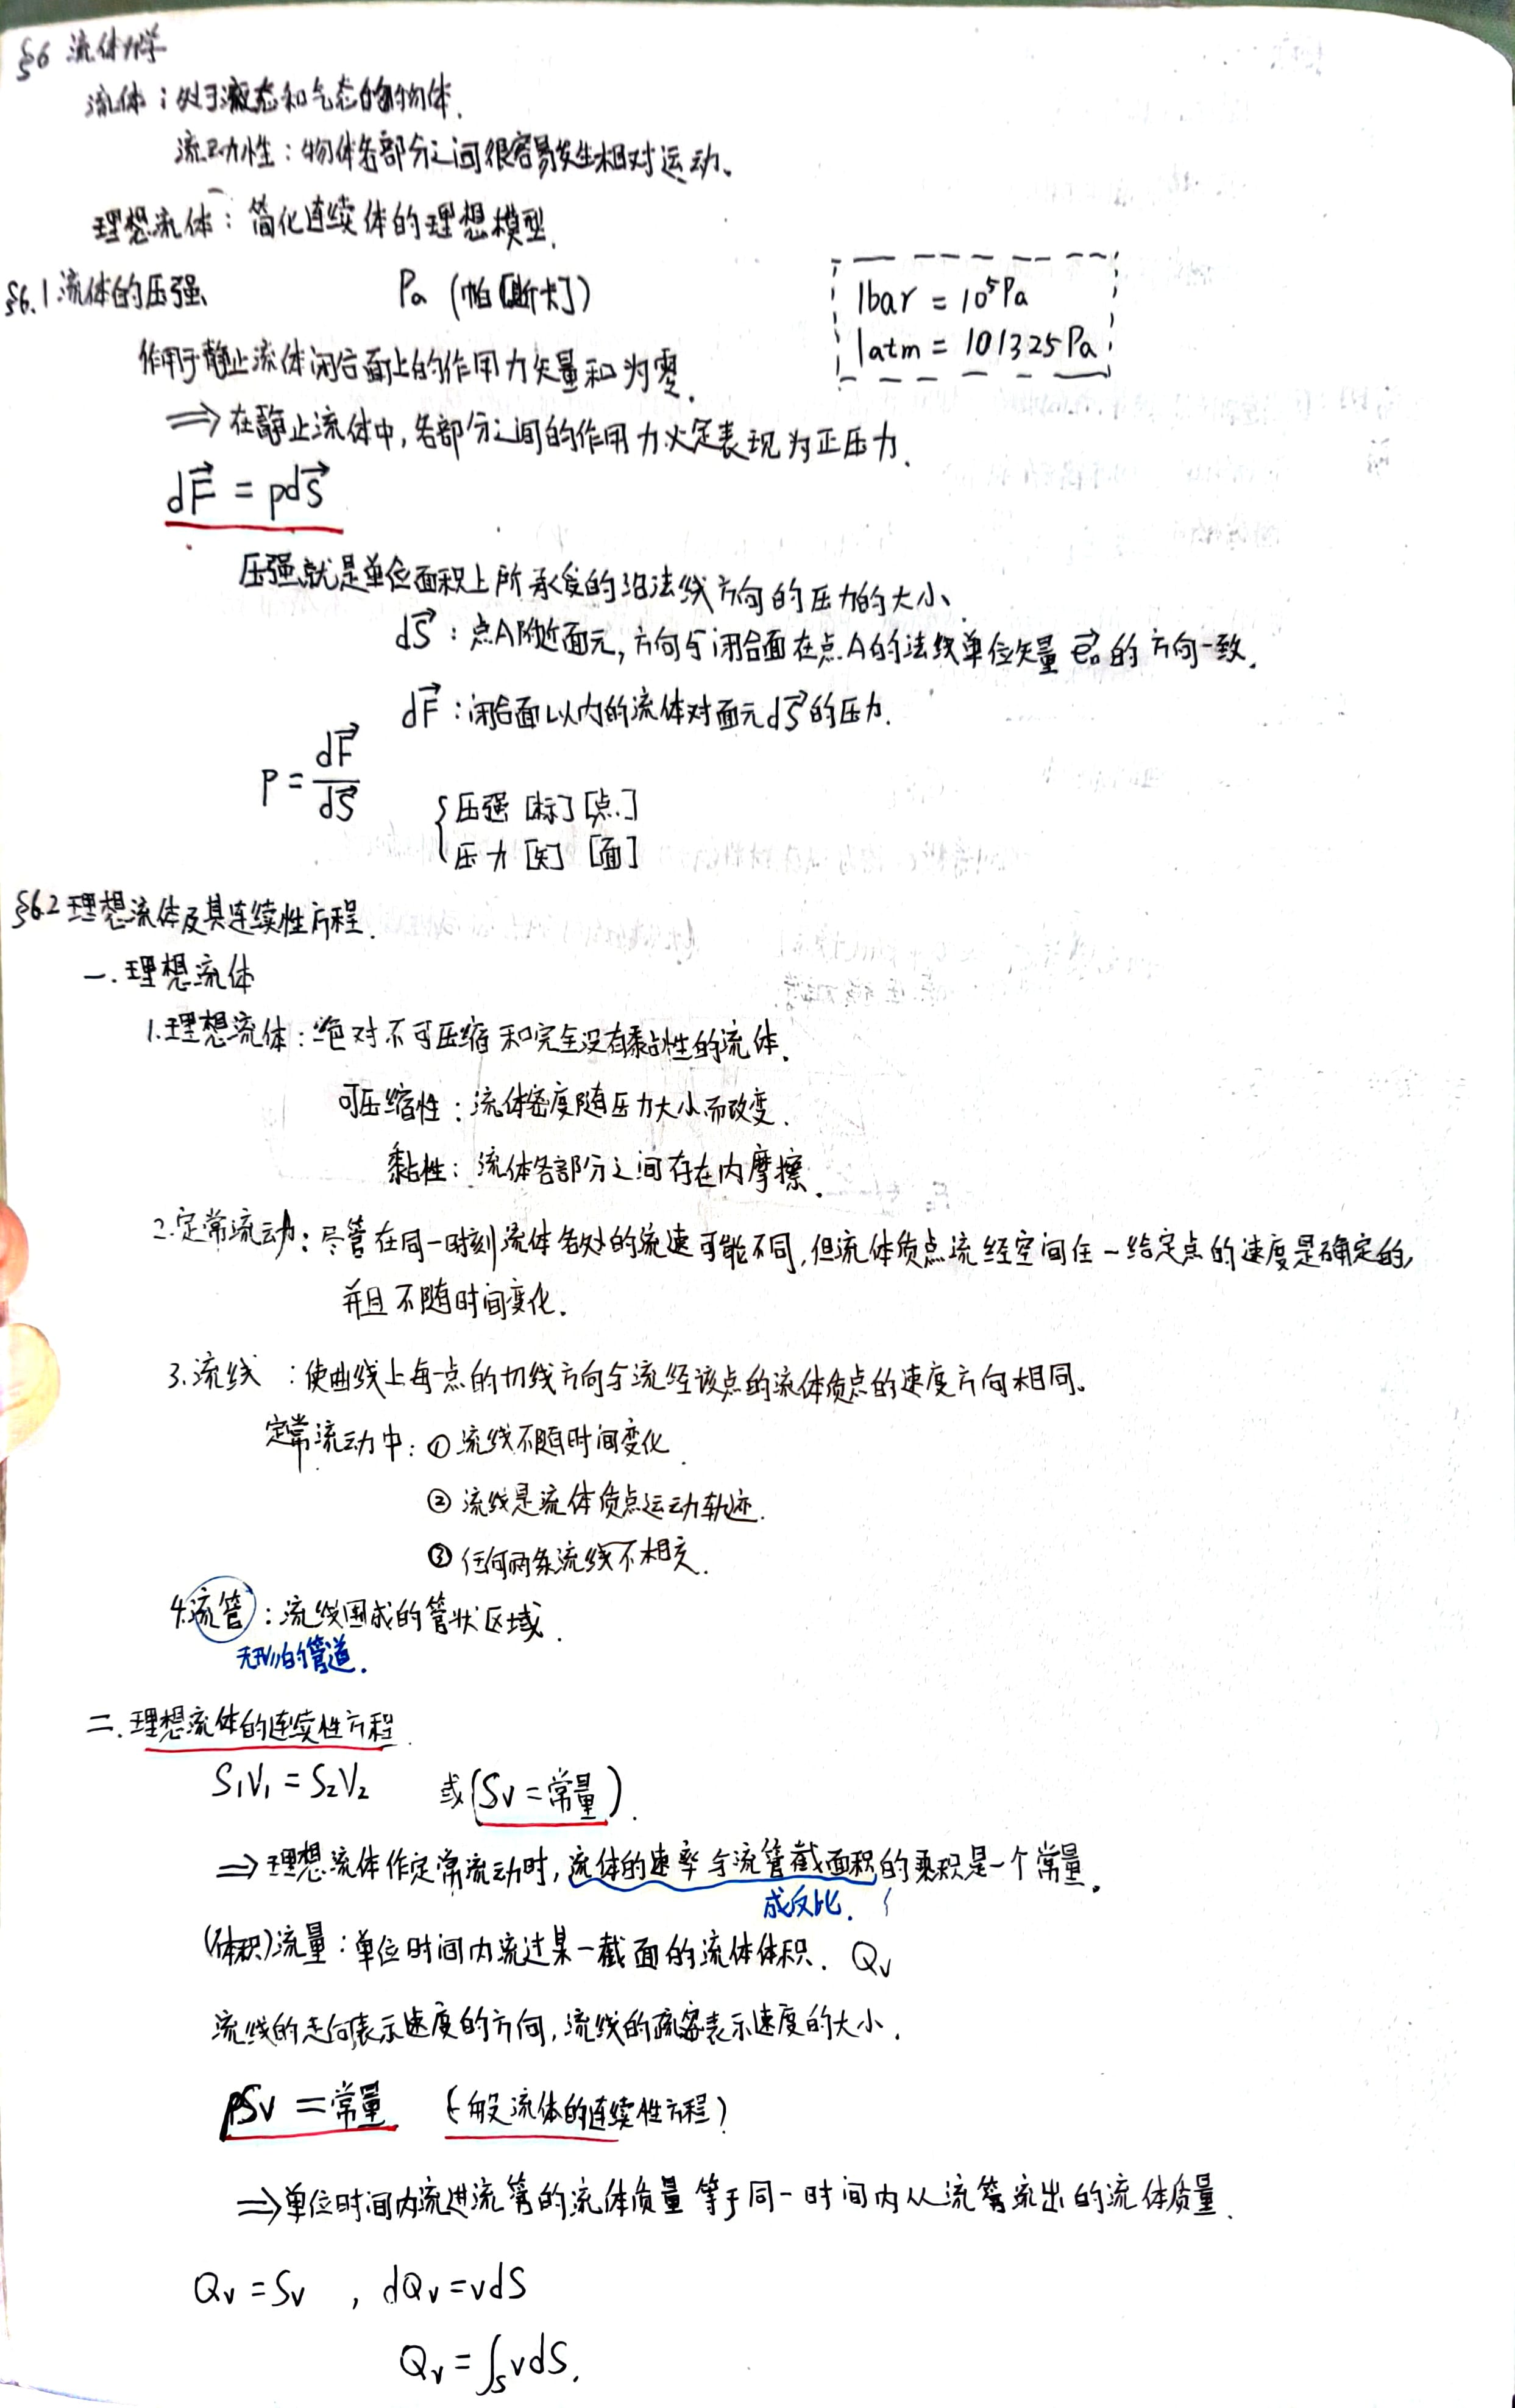 §6 流体力学
流体：处于液态和气态的物体.
流动性：物体各部分之间很容易发生相对运动。
理想流体：简化连续体的理想模型.
§6.1 流体的压强 Pa (帕[斯卡])
1bar = 10⁵Pa
1atm = 101325Pa
作用于静止流体闭合面上的作用力矢量和为零.
⟹ 在静止流体中，各部分之间的作用力必定表现为正压力.
dF⃗ = pdS⃗
压强就是单位面积上所承受的沿法线方向的压力的大小.
dS⃗：点A附近面元，方向与闭合面在点A的法线单位矢量 e⃗ₙ 的方向一致.
dF⃗：闭合面以内的流体对面元dS⃗的压力.
P = dF⃗/dS⃗
{压强 [标] [点]
压力 [矢] [面]
§6.2 理想流体及其连续性方程.
一. 理想流体
1.理想流体：绝对不可压缩和完全没有黏性的流体.
可压缩性：流体密度随压力大小而改变.
黏性：流体各部分之间存在内摩擦.
2.定常流动：尽管在同一时刻流体各处的流速可能不同，但流体质点流经空间任一给定点的速度是确定的，
并且不随时间变化.
3.流线：使曲线上每一点的切线方向与流经该点的流体质点的速度方向相同。
定常流动中：① 流线不随时间变化.
② 流线是流体质点运动轨迹.
③ 任何两条流线不相交.
4.流管：流线围成的管状区域.
无形的管道.
二. 理想流体的连续性方程.
S₁V₁ = S₂V₂ 或(Sv = 常量).
⟹ 理想流体作定常流动时，流体的速率与流管截面积的乘积是一个常量.
成反比.
(体积)流量：单位时间内流过某一截面的流体体积. Qv
流线的走向表示速度的方向，流线的疏密表示速度的大小.
ρSv = 常量 (一般流体的连续性方程)
⟹ 单位时间内流进流管的流体质量等于同一时间内从流管流出的流体质量.
Qv = Sv , dQv = vdS
Qv = ∫ₛvdS.